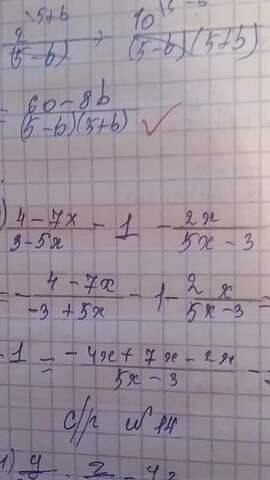 5+b 5-b
2/(5-b) + 10/((5-b)(5+b))
= (60-8b)/((5-b)(5+b)) ✓
) (4-7x)/(3-5x) - 1 - 2x/(5x-3)
= - (4-7x)/(-3+5x) - 1 - 2x/(5x-3) =
-1 = (-4x+7x-2x)/(5x-3) -
с/р №14
1) y/ 2/